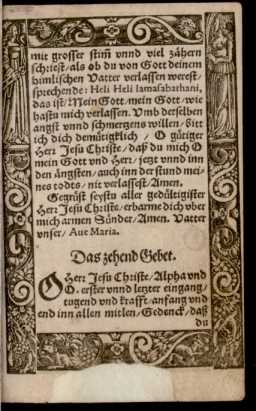 mit grosser stim̃ vnnd viel zähern
schriest/als ob du von Gott deinem
himlischen Vatter verlassen werest/
sprechende: Heli Heli lamasabathani,
das ist/ Mein Gott/mein Gott/wie
hastu mich verlassen. Vmb derselben
angst vnnd schmertzens willen/bitt
ich dich demütigklich / O gütiger
Herr Jesu Christe/daß du mich O
mein Gott vnd Herr/jetzt vnnd inn
den ängsten/auch inn der stund mei-
nes todts/nit verlassest/Amen.
Gegrüst seystu aller gedültigister
Herr Jesu Christe/erbarme dich vber
mich armen Sünder/Amen. Vatter
vnser/ Aue Maria.
Das zehend Gebet.
O Herr Jesu Christe/Alpha vnd
O. erster vnnd letzter eingang/
tugend vnd krafft/anfang vnd
end inn allen mitlen/Gedenck/daß
du